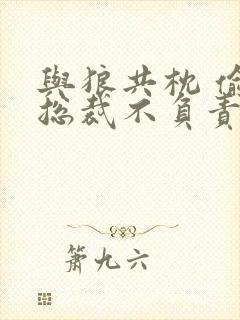 與狼共枕 偷
總裁不負責
箫九六